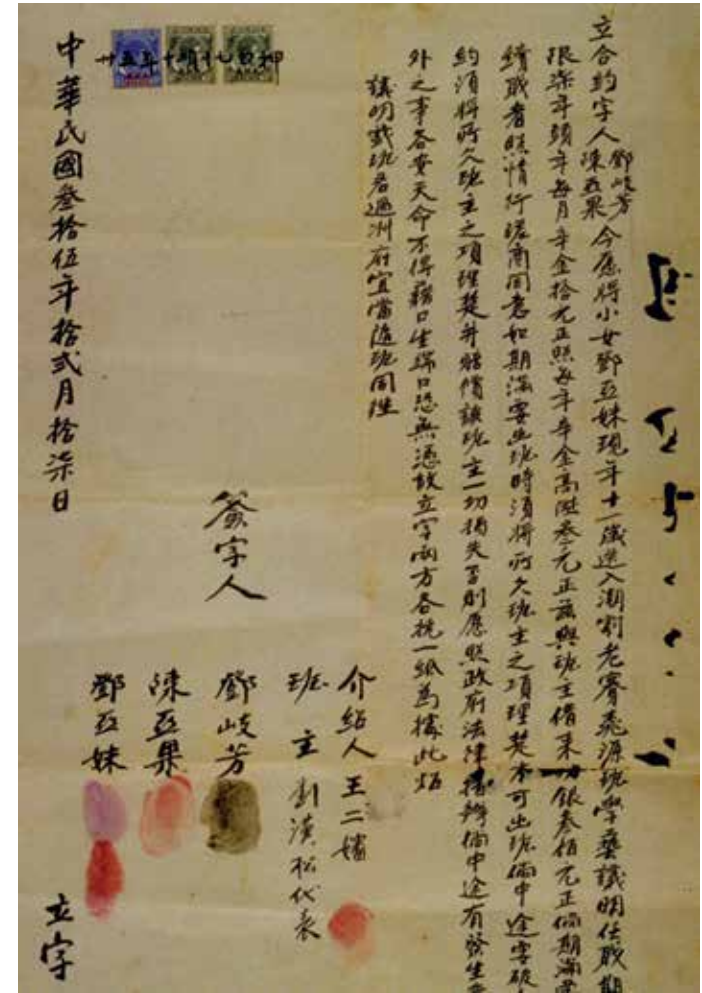 立合約字人鄧岐芳陳亞果今愿將小女鄧亞妹現年十一歲送入潮劇老賽飛源班學藝議明任職期
限柒年頭年每月辛金拾元正照每年辛金高陞叁元正茲與班主借來銀叁佰元正倘期滿
續職者照情行磋商同意如期滿要出班時須將所欠班主之項理楚本可出班倘中途要破
約須將所欠班主之項理楚并賠償該班主一切損失否則愿照政府法律倘中途有發生
外之事各安天命不得藉口生端口恐無憑故立字兩方各抗一紙為據此炤
議明戲班若過洲府宜當隨班同往
介紹人王二嬸
班主劉漢松代表
簽字人
鄧岐芳
陳亞果
鄧亞妹
中華民國叁拾伍年拾弍月拾柒日
立字